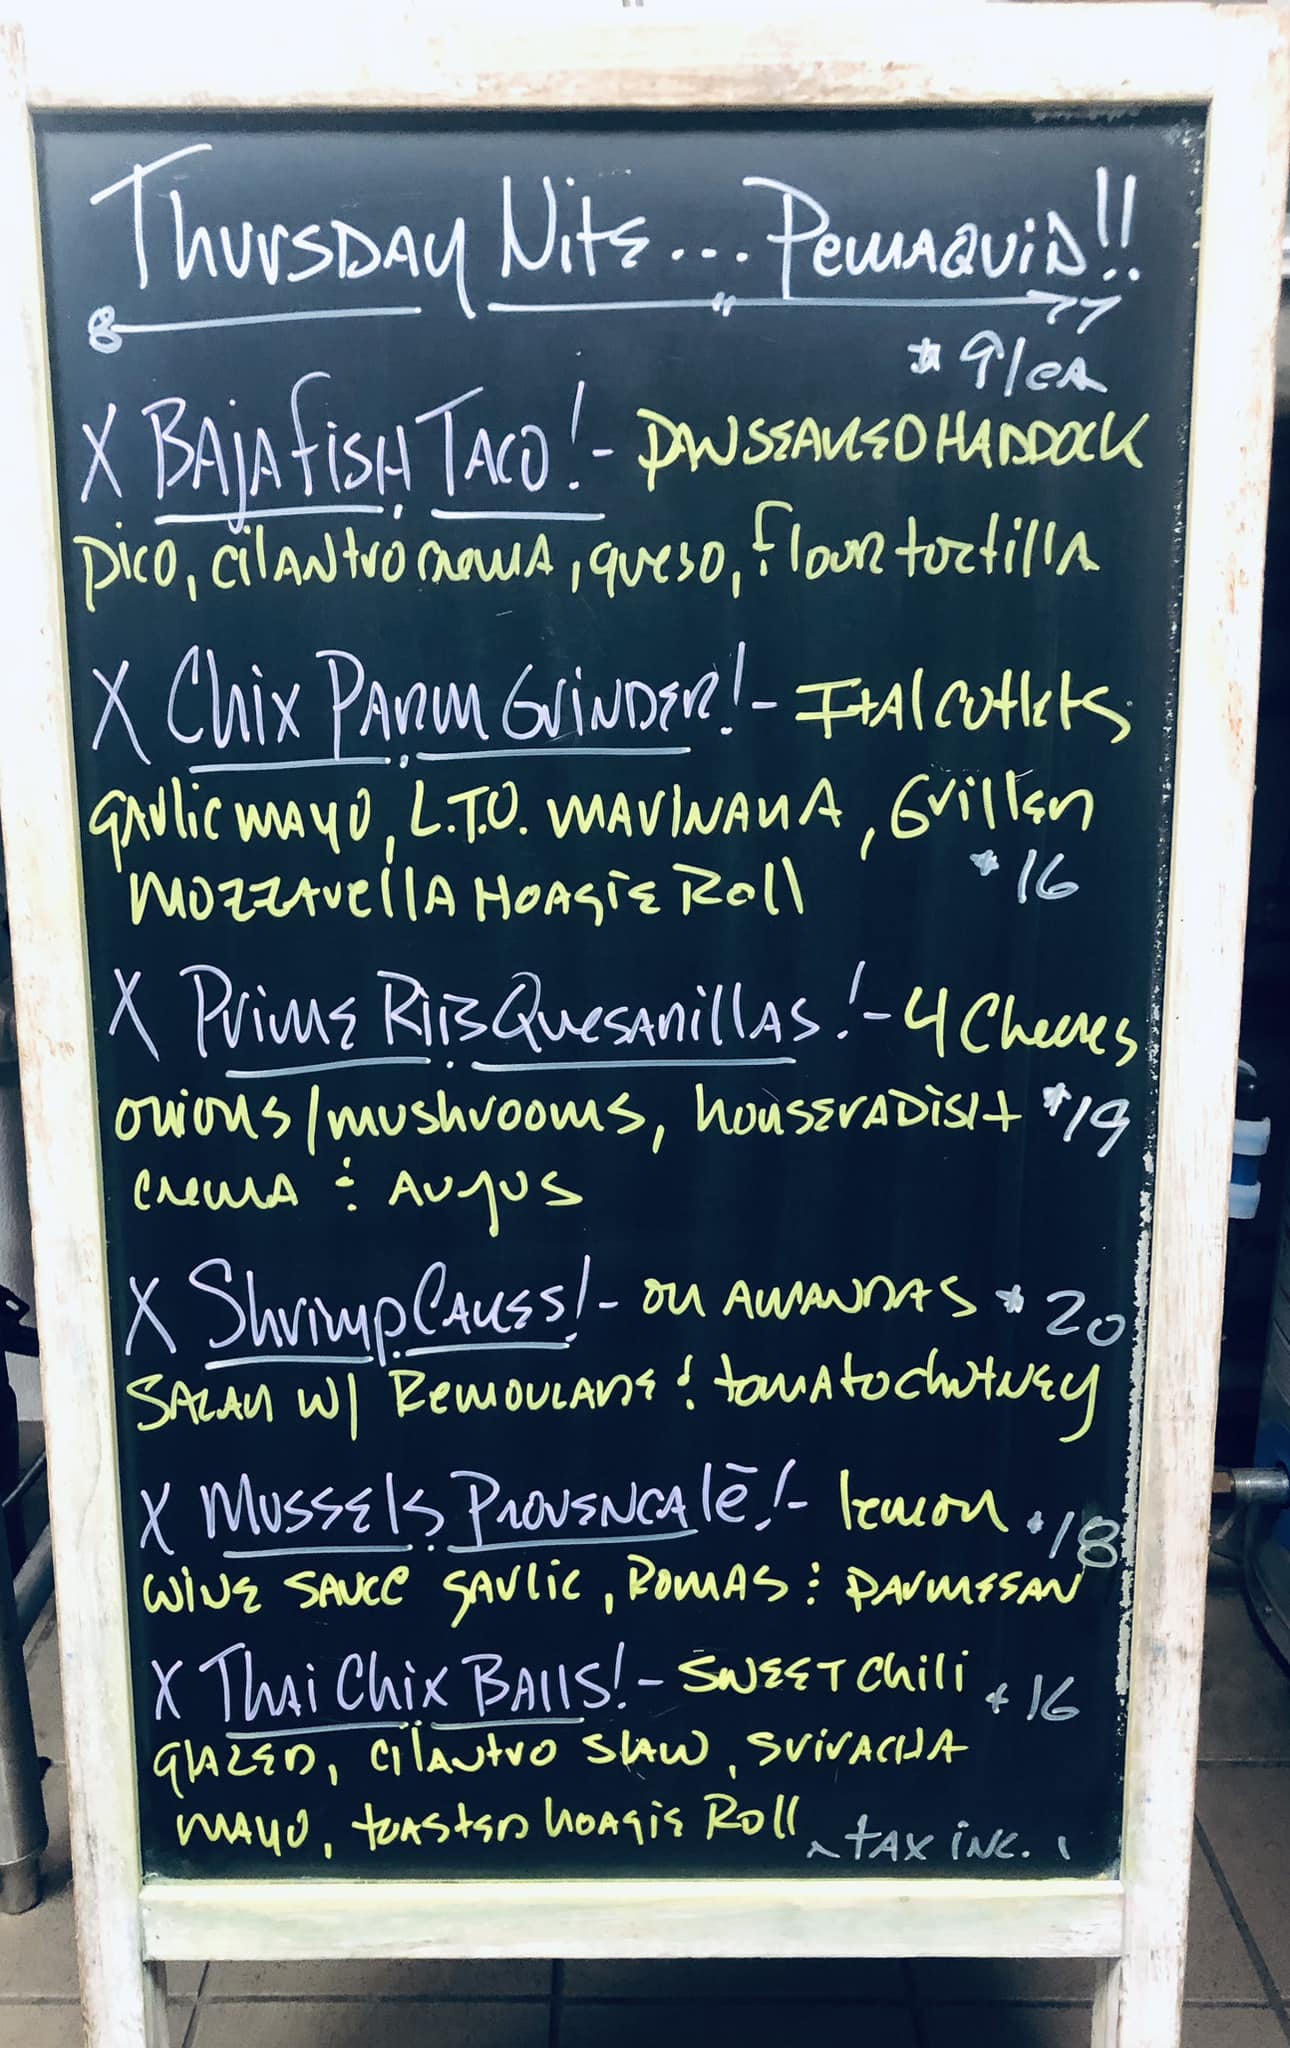 Thursday Nite... Pemaquid!!
$9/ea
X Baja Fish Taco! - Panseared Haddock
Pico, cilantro crema, queso, flour tortilla
X Chix Parm Grinder! - Ital cutlets
garlic mayo, L.T.O. marinara, Grilled
mozzarella Hoagie Roll $16
X Prime Rib Quesadillas! - 4 Cheeses
onions/mushrooms, horseradish $19
crema & Aujus
X Shrimp Cakes! - on Amandas $20
Salad w/ Remoulade & tomato chutney
X Mussels Provencalē! - lemon $18
wine sauce garlic, Romas & parmesan
X Thai Chix Balls! - sweet chili $16
glazed, cilantro slaw, sriracha
mayo, toasted hoagie Roll
tax inc.